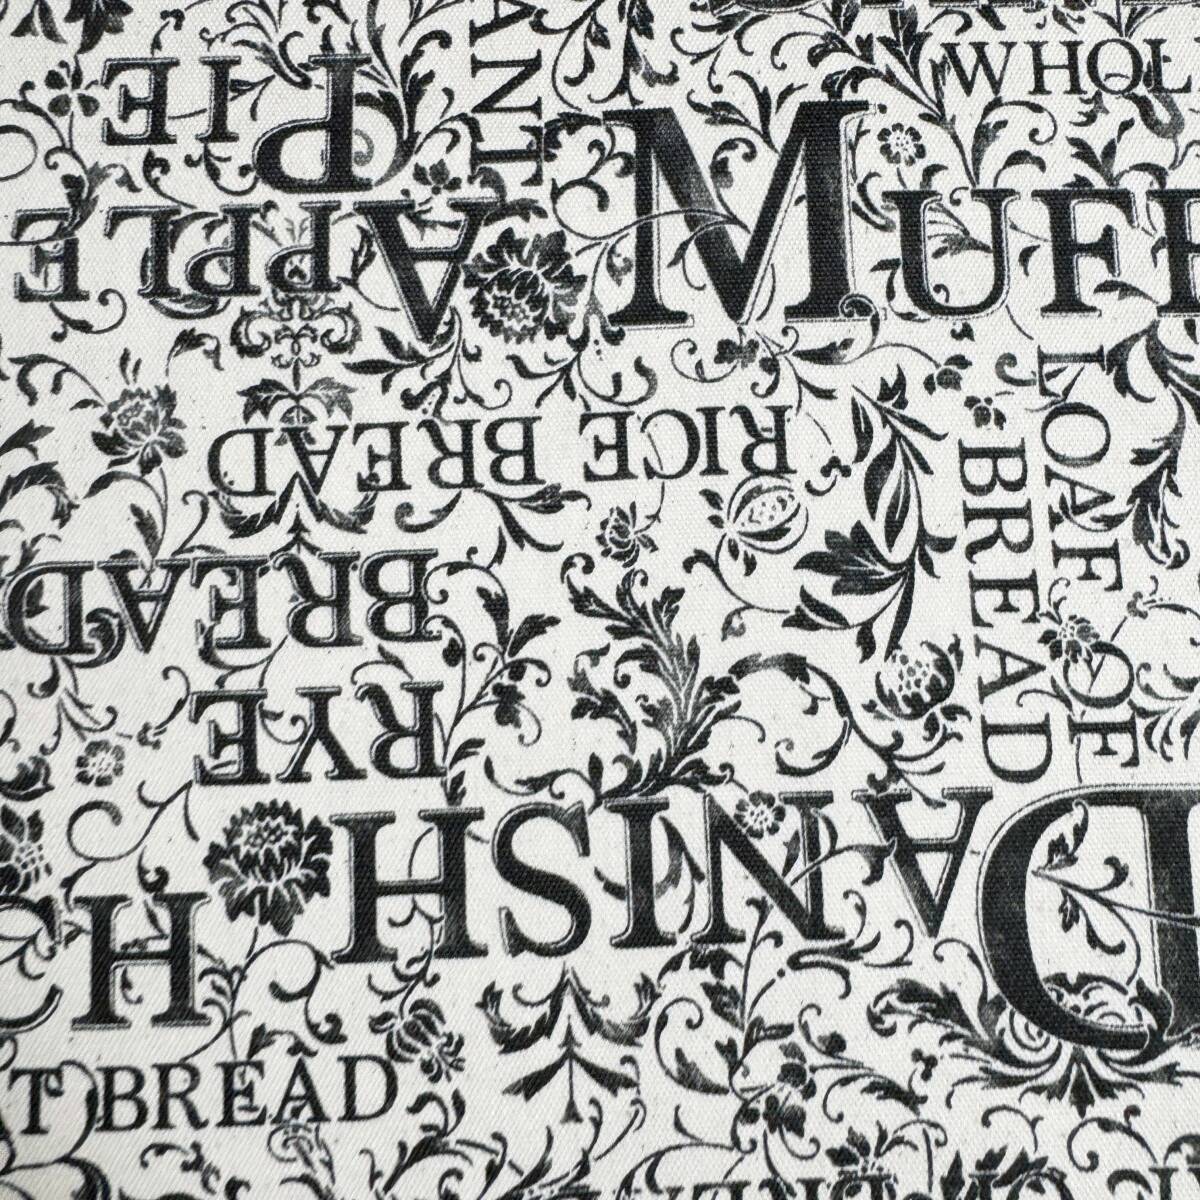 WHOL
MUFF
ANT
APPLE
PIE
RICE BREAD
LOAF OF
BREAD
RYE
BREAD
DANISH
CH
T BREAD